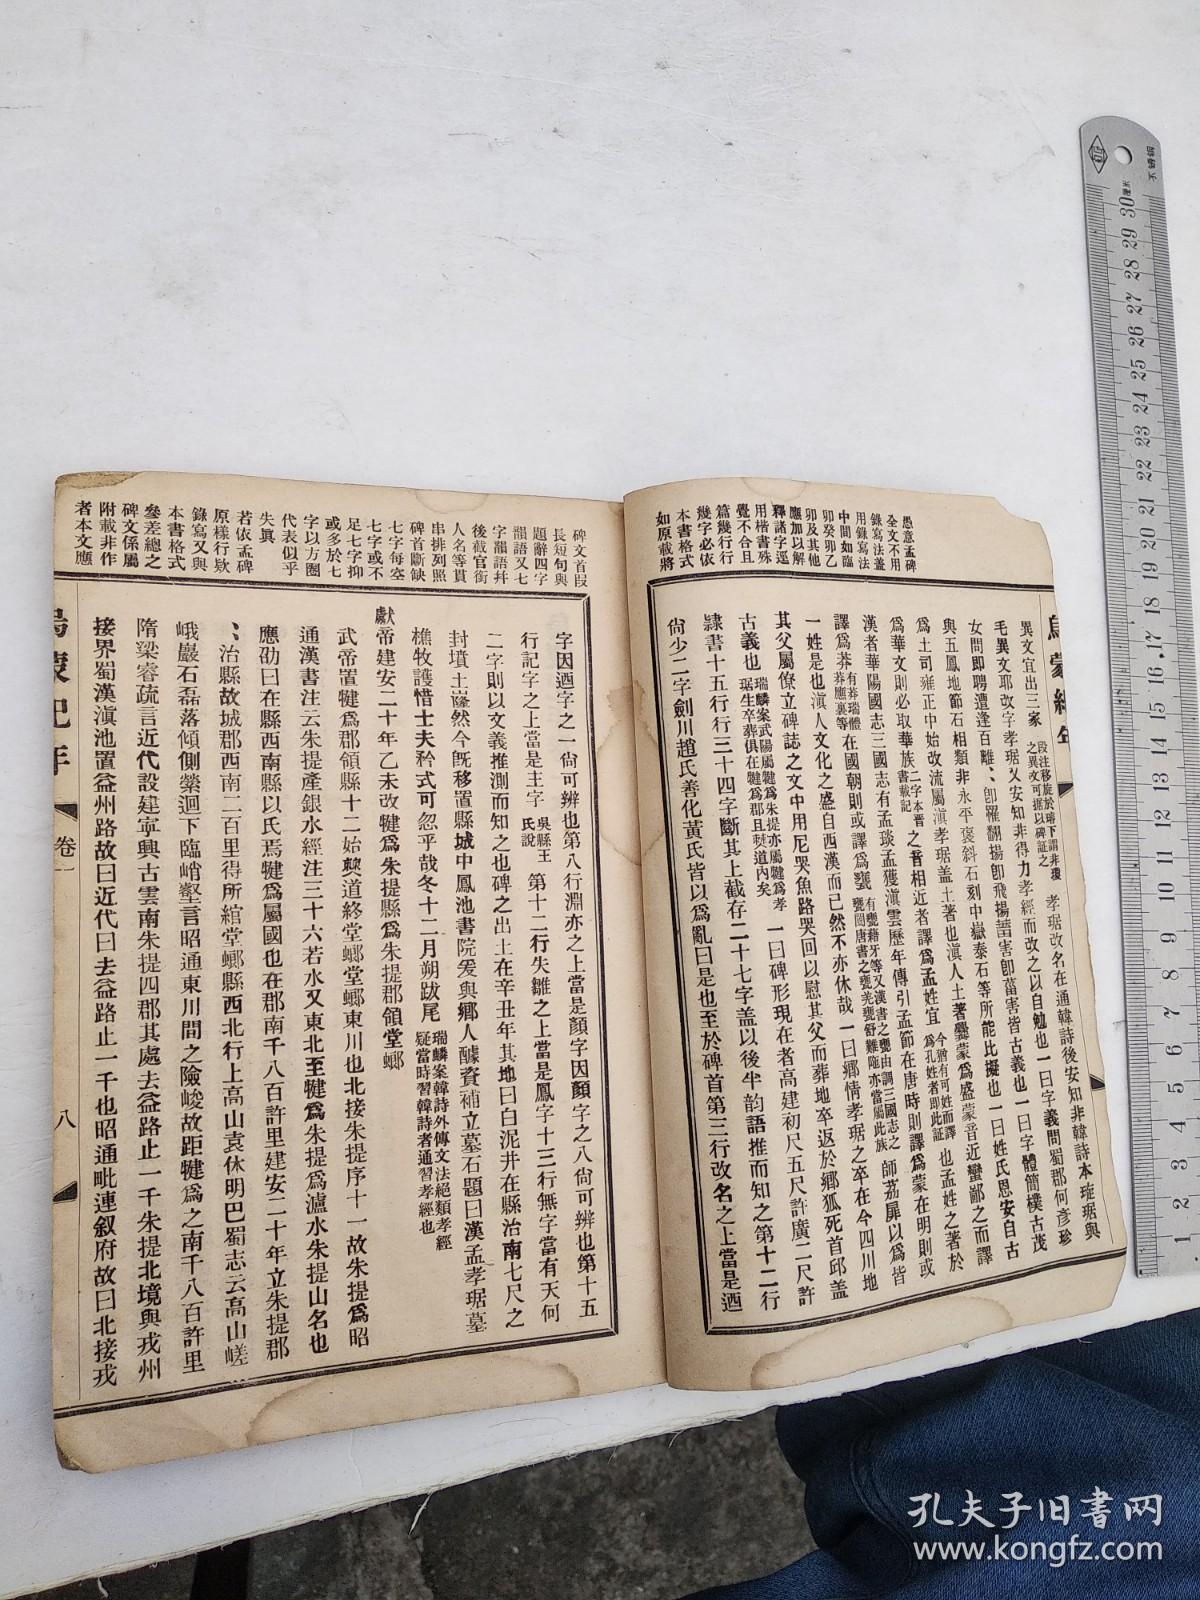 愚意孟碑
全文不用
錄寫法蓋
用錄寫法
中間如臨
卯癸卯乙
卯及其他
應加以解
釋諸字逕
用楷書殊
覺不合且
篇幾行行
幾字必依
本書格式
如原載將
異文宜出三家
孝琚改名在通韓詩後安知非韓詩本琁琚與
毛異文耶改字孝琚又安知非得力孝經而改之以自勉也一曰字義問蜀郡何彥珍
女問即聘遭逢百離
與五鳳地節石相類非永平褒斜石刻中嶽泰石等所能比擬也一曰姓氏恩安自古
爲土司雍正中始改流屬滇孝琚盖土著也滇人土著爨蒙爲盛蒙音近蠻鄙之而譯
爲華文則必取華族
之音相近者譯爲孟姓宜
也孟姓之著於
漢者華陽國志三國志有孟琰孟獲滇雲歷年傳引孟節在唐時則譯爲蒙在明則或
譯爲莽
在國朝則或譯爲甕
師荔扉以爲皆
一姓是也滇人文化之盛自西漢而已然不亦休哉一曰鄉情孝琚之卒在今四川地
其父屬僚立碑誌之文中用尼哭魚路哭回以慰其父而葬地卒返於鄉狐死首邱盖
古義也
一曰碑形現在者高建初尺五尺許廣二尺許
隷書十五行行三十四字斷其上截存二十七字盖以後半韵語推而知之第十二行
尙少二字劍川趙氏善化黃氏皆以爲亂曰是也至於碑首第三行改名之上當是迺
碑文首段
長短句與
題辭四字
韻語又七
字韻語幷
後截官銜
人名等貫
串排列照
碑首斷缺
七字每空
七字或不
足七字抑
或多於七
字以方圈
代表似乎
失眞
若依孟碑
原樣行欵
錄寫又與
本書格式
參差總之
碑文係屬
附載非作
者本文應
字因迺字之一尙可辨也第八行淵亦之上當是顏字因顏字之八尙可辨也第十五
行記字之上當是主字
吳縣王
氏說
第十二行失雛之上當是鳳字十三行無字當有天何
二字則以文義推測而知之也碑之出土在辛丑年其地曰白泥井在縣治南七尺之
封墳土巃然今旣移置縣城中鳳池書院爰與鄉人醵資補立墓石題曰漢孟孝琚墓
樵牧護惜士夫矜式可忽乎哉冬十二月朔跋尾
瑞麟案韓詩外傳文法絕類孝經
疑當時習韓詩者通習孝經也
獻帝建安二十年乙未改犍爲朱提縣爲朱提郡領堂螂
武帝置犍爲郡領縣十二始僰道終堂螂堂螂東川也北接朱提序十一故朱提爲昭
通漢書注云朱提產銀水經注三十六若水又東北至犍爲朱提爲瀘水朱提山名也
應劭曰在縣西南縣以氏焉犍爲屬國也在郡南千八百許里建安二十年立朱提郡
治縣故城郡西南二百里得所綰堂螂縣西北行上高山袁休明巴蜀志云高山嵯
峨巖石磊落傾側縈迴下臨峭壑言昭通東川間之險峻故距犍爲之南千八百許里
隋梁睿疏言近代設建寧興古雲南朱提四郡其處去益路止一千朱提北境與戎州
接界蜀漢滇池置益州路故曰近代曰去益路止一千也昭通毗連叙府故曰北接戎
卷一
八
孔夫子旧書网
www.kongfz.com